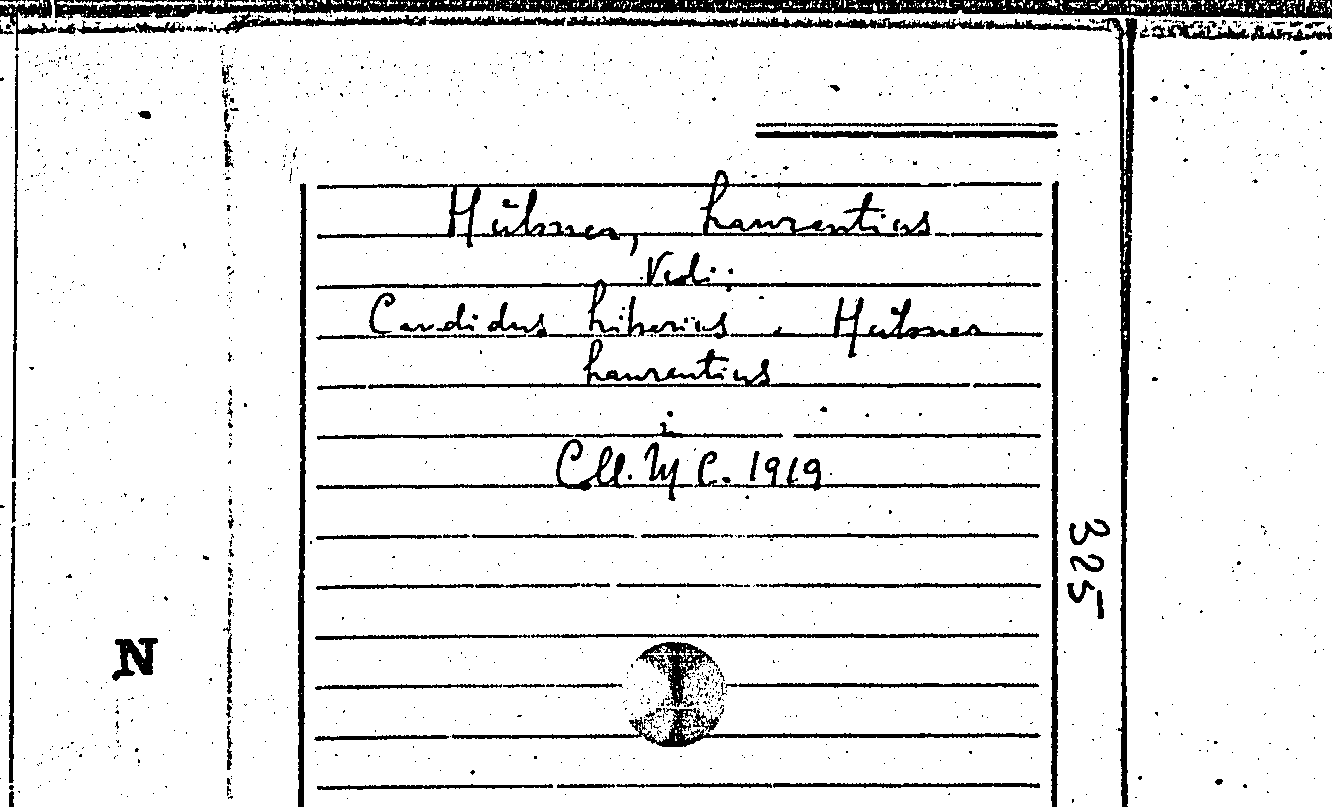 Hübner, Laurentius
Vedi:
Candidus Liberius . Hübner
Laurentius
in
Coll. M C. 1919
325
N